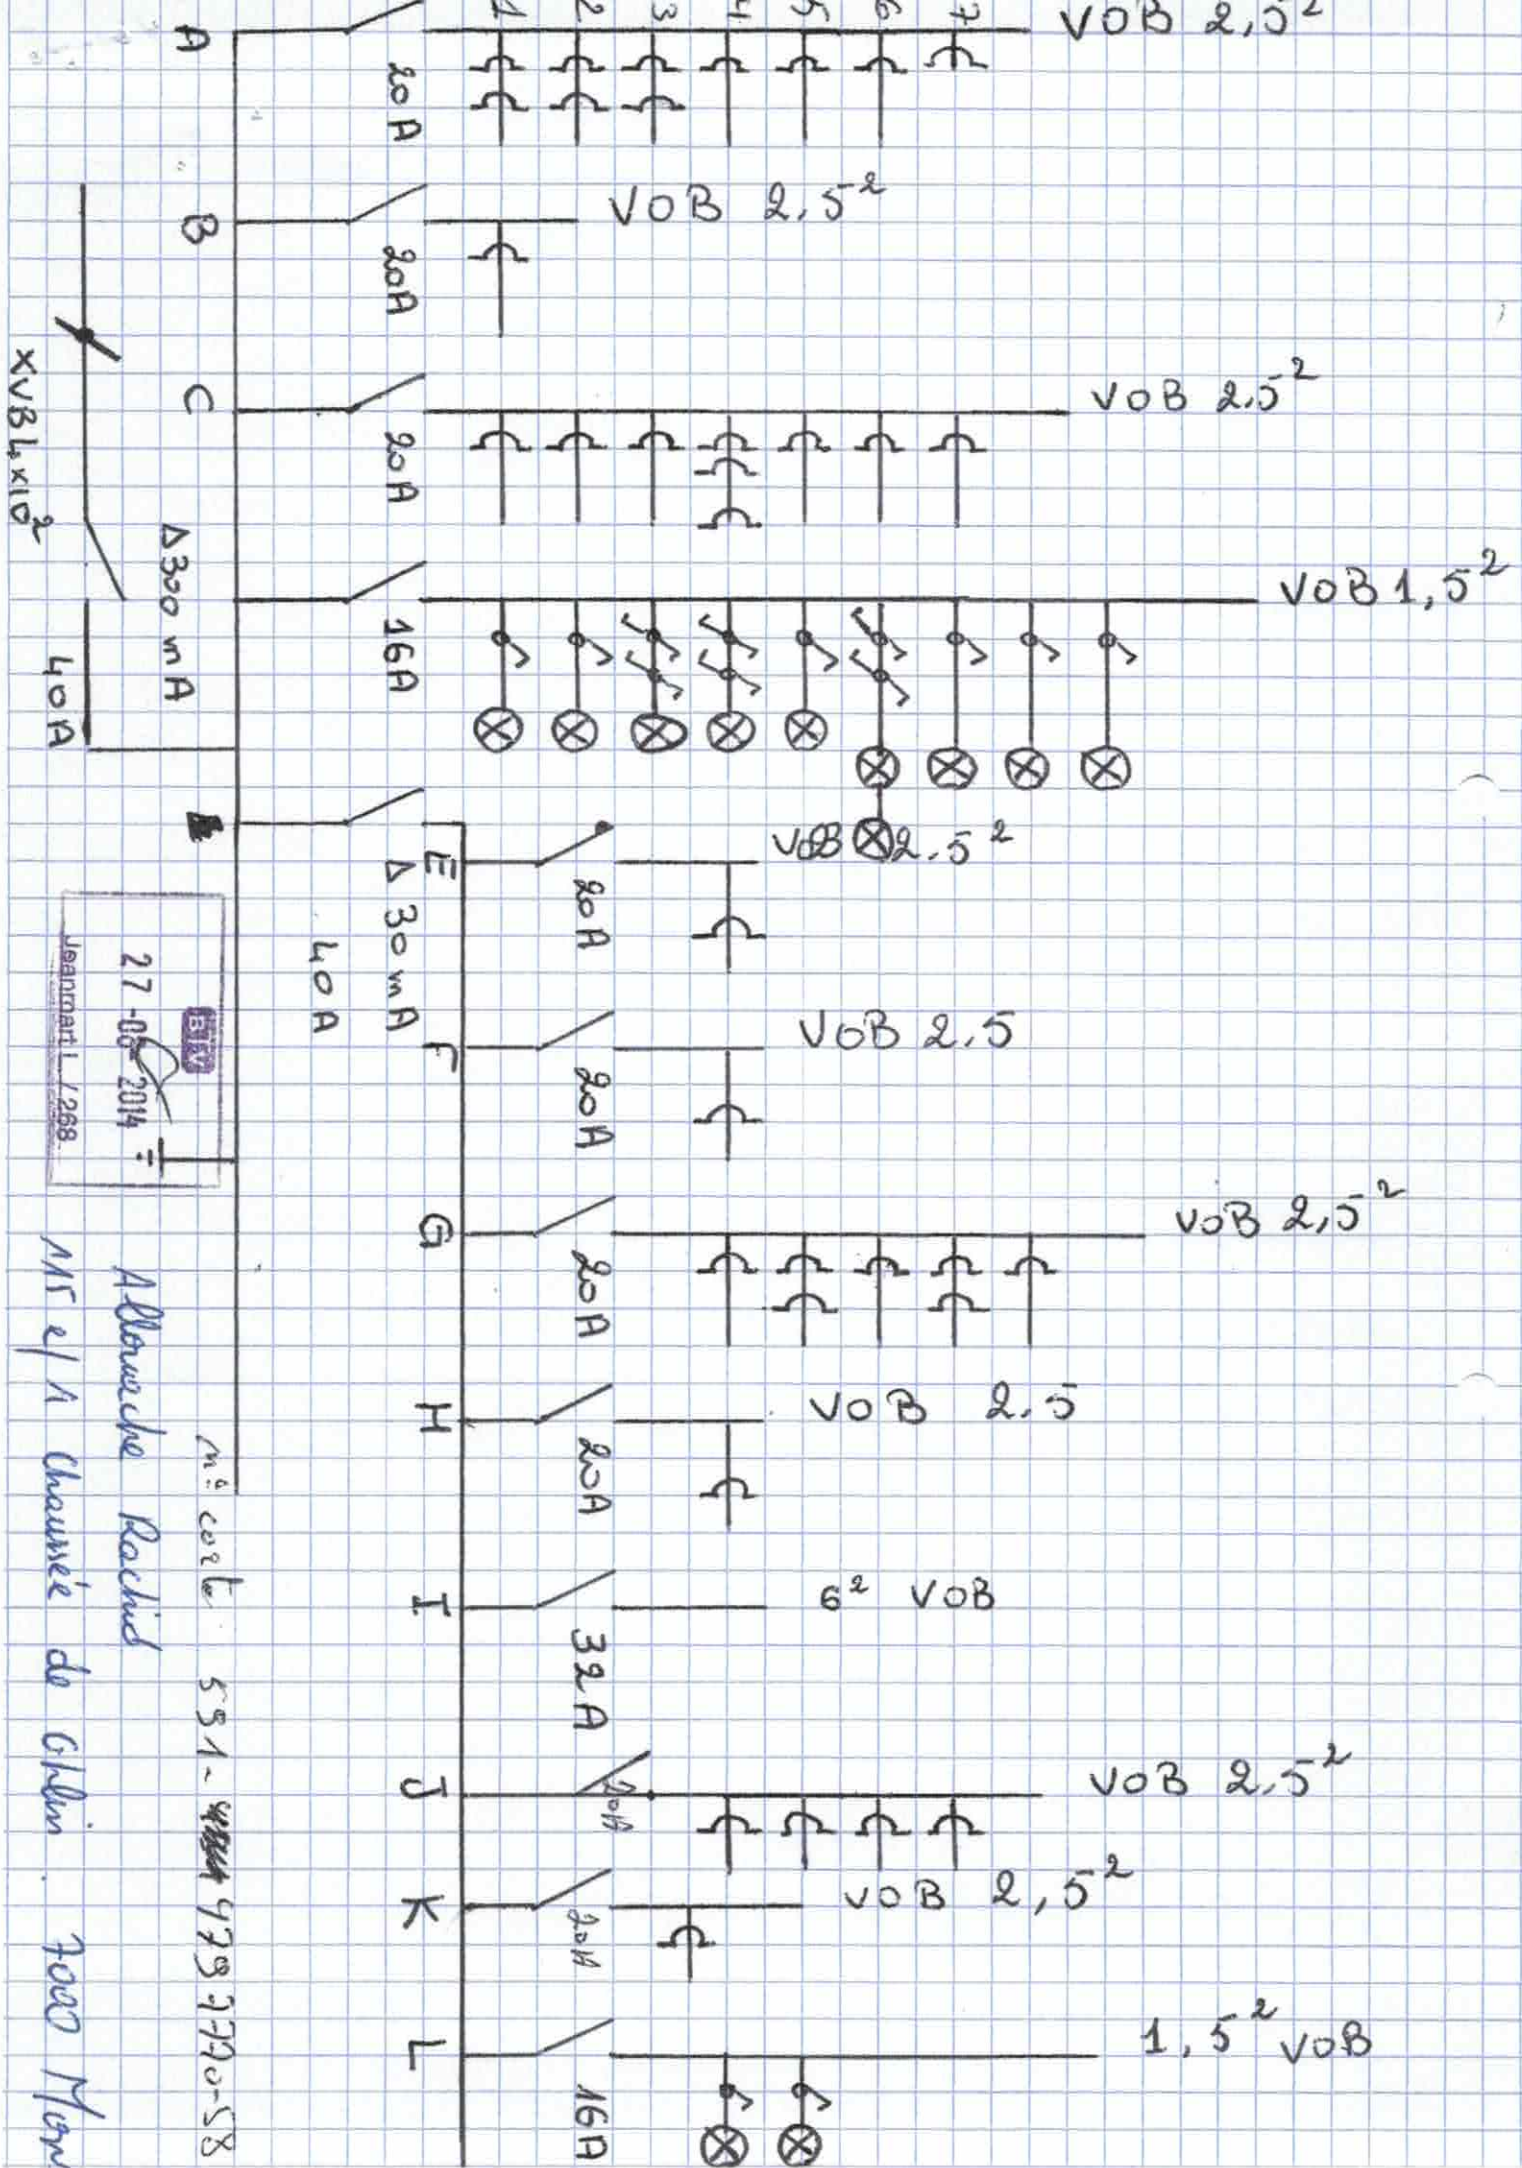 1 2 3 4 5 6 7
A
20A
VOB 2,5²
B
20A
VOB 2.5²
C
20A
VOB 2.5²
16A
VOB 1,5²
XVB 4x10²
Δ300 mA
40A
Δ 30mA
40A
E
20A
VOB 2.5²
F
20A
VOB 2.5
G
20A
VOB 2,5²
H
20A
VOB 2.5
I
32A
6² VOB
J
20A
VOB 2.5²
K
20A
VOB 2,5²
L
16A
1,5² VOB
27 -08- 2014
Jeanmart L. / 268
Rachid
115 e/1 Chaussée de Ghlin. 7000